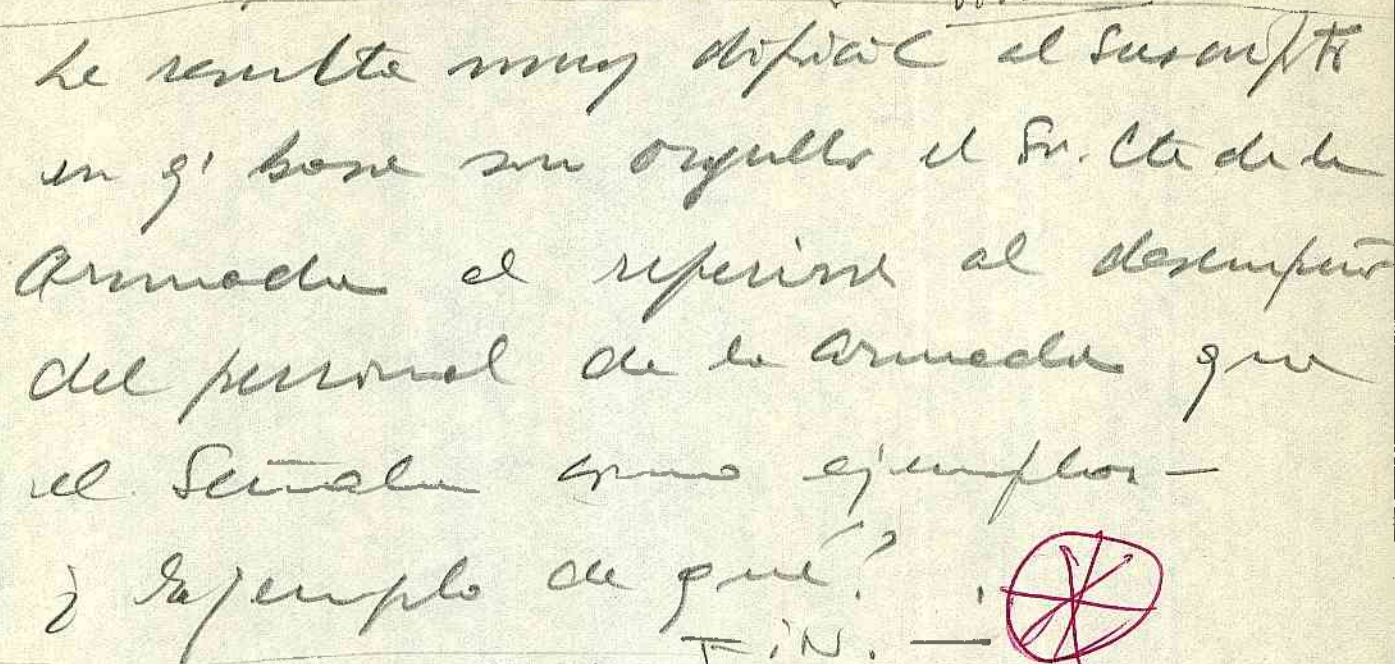 Le resulta muy dificil al suscripto
en q' base su orgullo el Sr. Cte de la
Armada al referirse al desempeño
del personal de la Armada que
el Señala como ejemplos -
¿ Ejemplo de qué? .
FiN. —